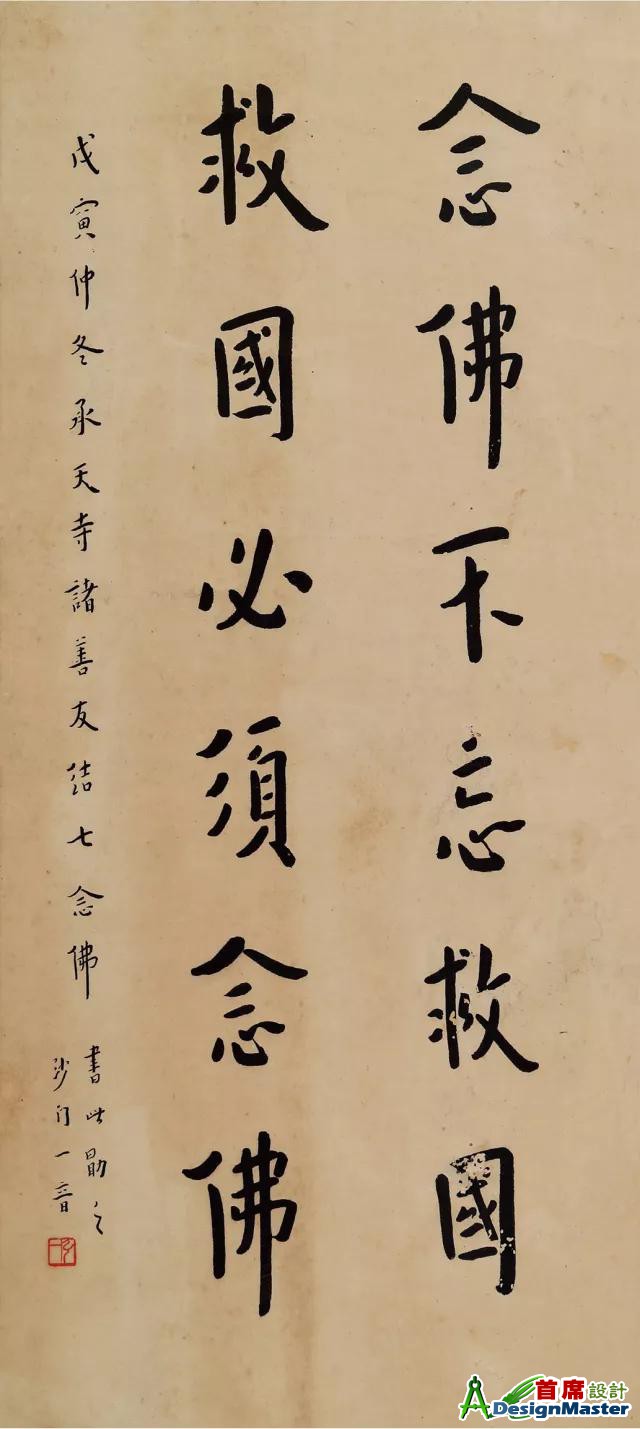 念佛不忘救國
救國必須念佛
戊寅仲冬承天寺諸善友結七念佛
書此勗之
沙门一音
首席設計
DesignMaster